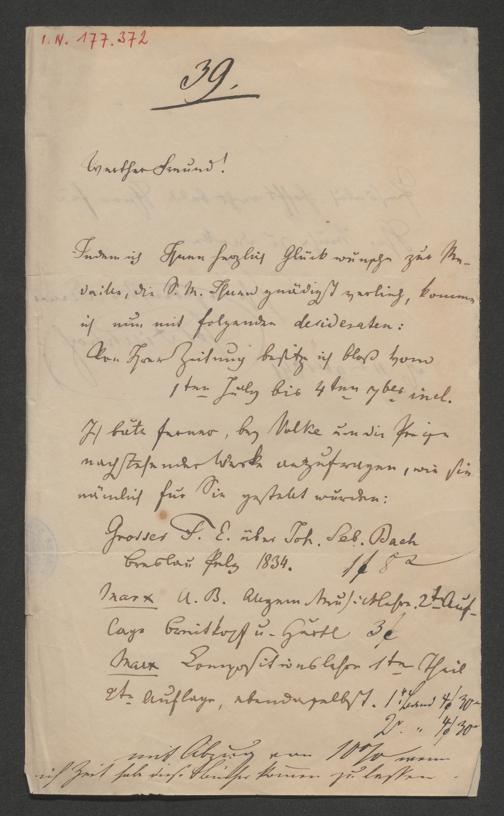 I.N. 177.372
39.
Werther Freund!
Indem ich Ihnen herzlich Glück wünsche zur Me-
daille, die S. M. Ihnen gnädigst verlieh, komme
ich nun mit folgenden desideraten:
Von Ihrer Zeitung besitze ich bloß vom
1ten July bis 4ten 7ber incl.
Ich bitte ferner, bey Volke um die Preise
nachstehender Werke anzufragen, wie sie
nämlich für Sie gestellt würden:
Grosser F. E. über Joh. Seb. Bach
Breslau Pelz 1834. 1f 8x
Marx A. B. Allgem. Musiklehre. 2t Auf-
lage Breitkopf u. Härtl 3f
Marx Compositionslehre 1ter Theil
2te Auflage, ebendaselbst. 1ter Band 4f 30x
2r. " 4f 30x
mit Abzug von 10% wenn
ich Zeit habe diese Bücher kommen zu lassen